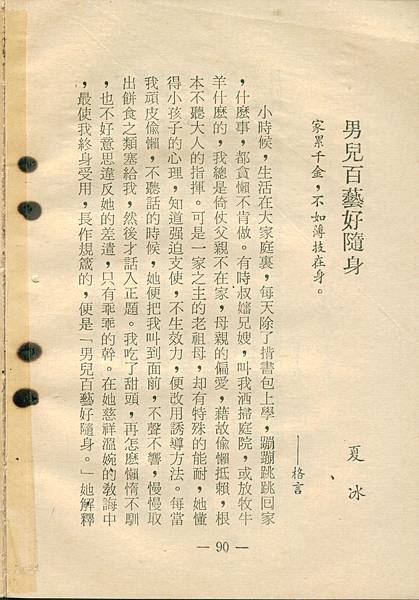 男兒百藝好隨身
家累千金，不如薄技在身。
——格言
夏冰
小時候，生活在大家庭裏，每天除了揹書包上學，蹦蹦跳跳回家
，什麼事，都貪懶不肯做。有時叔嬸兄嫂，叫我洒掃庭院，或放牧牛
羊什麼的，我總是倚仗父親不在家，母親的偏愛，藉故偷懶抵賴，根
本不聽大人的指揮。可是一家之主的老祖母，却有特殊的能耐，她懂
得小孩子的心理，知道强迫支使，不生效力，便改用誘導方法。每當
我頑皮偷懶，不聽話的時候，她便把我叫到面前，不聲不響，慢慢取
出餅食之類塞給我，然後才話入正題。我吃了甜頭，再怎麼懶惰不馴
，也不好意思違反她的差遣，只有乖乖的幹。在她慈祥溫婉的敎誨中
，最使我終身受用，長作規箴的，便是「男兒百藝好隨身。」她解釋
— 90 —